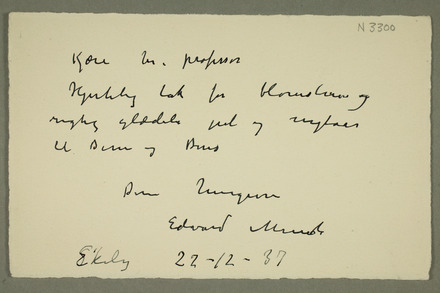 N 3300
Kjære hr. professor
Hjertelig tak for blomsterne og
rigtig glædelig jul og nytaar
til Dem og Deres
Deres
Edvard Munch
Ekely 22-12-37